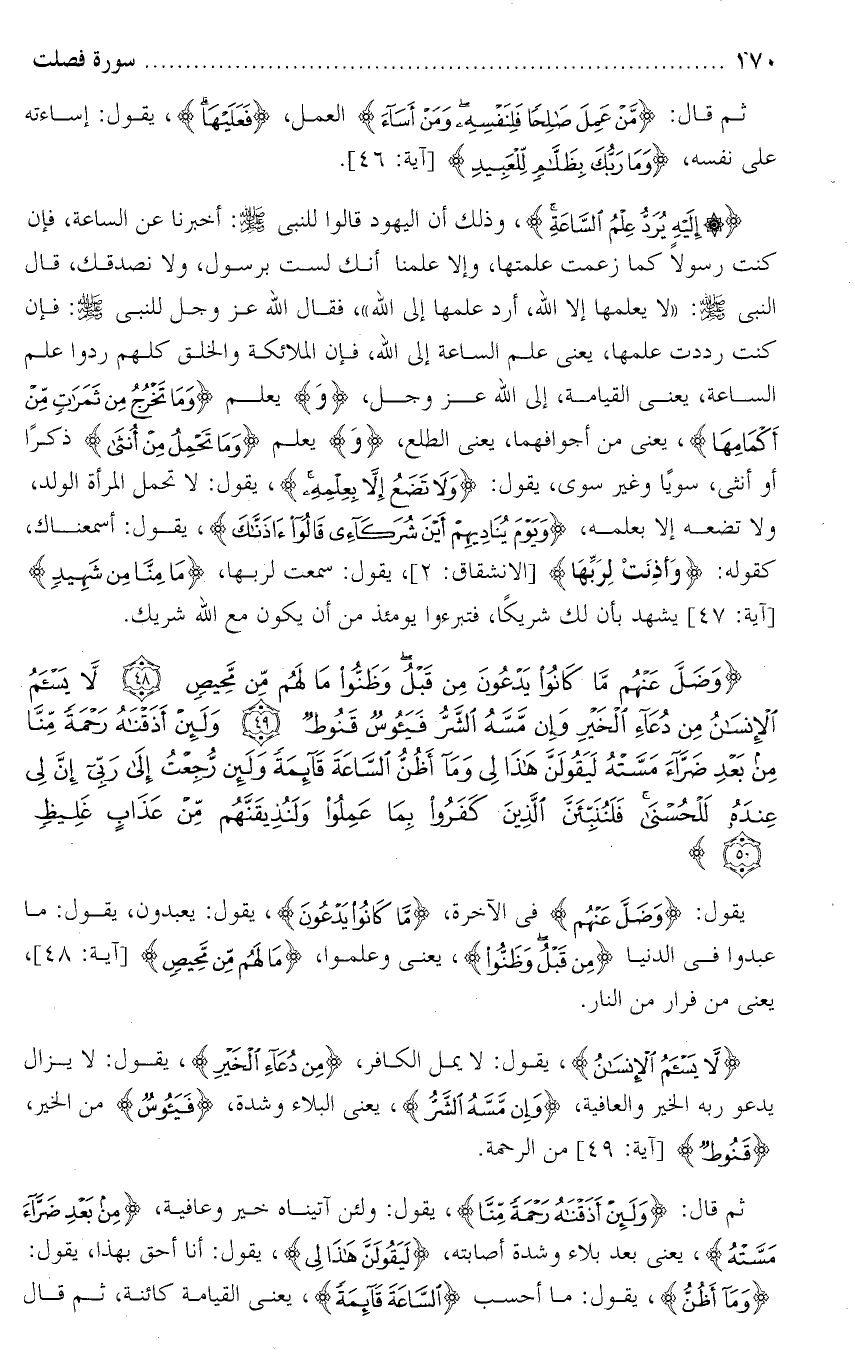 ٢٧٠ ........................................................................ سورة فصلت
ثم قال: ﴿مَّنْ عَمِلَ صَٰلِحًا فَلِنَفْسِهِۦۖ وَمَنْ أَسَآءَ﴾ العمل، ﴿فَعَلَيْهَاۗ﴾، يقول: إساءته
على نفسه، ﴿وَمَا رَبُّكَ بِظَلَّٰمٍ لِّلْعَبِيدِ﴾ [آية: ٤٦].
﴿۞ إِلَيْهِ يُرَدُّ عِلْمُ ٱلسَّاعَةِۚ﴾، وذلك أن اليهود قالوا للنبى ﷺ: أخبرنا عن الساعة، فإن
كنت رسولاً كما زعمت علمتها، وإلا علمنا أنك لست برسول، ولا نصدقك، قال
النبى ﷺ: «لا يعلمها إلا الله، أرد علمها إلى الله»، فقال الله عز وجل للنبى ﷺ: فإن
كنت رددت علمها، يعنى علم الساعة إلى الله، فإن الملائكة والخلق كلهم ردوا علم
الساعة، يعنى القيامة، إلى الله عز وجل، ﴿وَ﴾ يعلم ﴿وَمَا تَخْرُجُ مِن ثَمَرَٰتٍ مِّنْ
أَكْمَامِهَا﴾، يعنى من أجوافهما، يعنى الطلع، ﴿وَ﴾ يعلم ﴿وَمَا تَحْمِلُ مِنْ أُنثَىٰ﴾ ذكرًا
أو أنثى، سويًا وغير سوى، يقول: ﴿وَلَا تَضَعُ إِلَّا بِعِلْمِهِۦۚ﴾، يقول: لا تحمل المرأة الولد،
ولا تضعه إلا بعلمه، ﴿وَيَوْمَ يُنَادِيهِمْ أَيْنَ شُرَكَآءِى قَالُوٓا۟ ءَاذَنَّٰكَ﴾، يقول: أسمعناك،
كقوله: ﴿وَأَذِنَتْ لِرَبِّهَا﴾ [الانشقاق: ٢]، يقول: سمعت لربها، ﴿مَا مِنَّا مِن شَهِيدٍ﴾
[آية: ٤٧] يشهد بأن لك شريكًا، فتبرءوا يومئذ من أن يكون مع الله شريك.
﴿وَضَلَّ عَنْهُم مَّا كَانُوا۟ يَدْعُونَ مِن قَبْلُۖ وَظَنُّوا۟ مَا لَهُم مِّن مَّحِيصٍ ٤٨ لَّا يَسْـَٔمُ
ٱلْإِنسَٰنُ مِن دُعَآءِ ٱلْخَيْرِ وَإِن مَّسَّهُ ٱلشَّرُّ فَيَـُٔوسٌ قَنُوطٌ ٤٩ وَلَئِنْ أَذَقْنَٰهُ رَحْمَةً مِّنَّا
مِنۢ بَعْدِ ضَرَّآءَ مَسَّتْهُ لَيَقُولَنَّ هَٰذَا لِى وَمَآ أَظُنُّ ٱلسَّاعَةَ قَآئِمَةً وَلَئِن رُّجِعْتُ إِلَىٰ رَبِّىٓ إِنَّ لِى
عِندَهُۥ لَلْحُسْنَىٰۚ فَلَنُنَبِّئَنَّ ٱلَّذِينَ كَفَرُوا۟ بِمَا عَمِلُوا۟ وَلَنُذِيقَنَّهُم مِّنْ عَذَابٍ غَلِيظٍ
٥٠ ﴾
يقول: ﴿وَضَلَّ عَنْهُم﴾ فى الآخرة، ﴿مَّا كَانُوا۟ يَدْعُونَ﴾، يقول: يعبدون، يقول: ما
عبدوا فى الدنيا ﴿مِن قَبْلُۖ وَظَنُّوا۟﴾، يعنى وعلموا، ﴿مَا لَهُم مِّن مَّحِيصٍ﴾ [آية: ٤٨]،
يعنى من فرار من النار.
﴿لَّا يَسْـَٔمُ ٱلْإِنسَٰنُ﴾، يقول: لا يمل الكافر، ﴿مِن دُعَآءِ ٱلْخَيْرِ﴾، يقول: لا يزال
يدعو ربه الخير والعافية، ﴿وَإِن مَّسَّهُ ٱلشَّرُّ﴾، يعنى البلاء وشدة، ﴿فَيَـُٔوسٌ﴾ من الخير،
﴿قَنُوطٌ﴾ [آية: ٤٩] من الرحمة.
ثم قال: ﴿وَلَئِنْ أَذَقْنَٰهُ رَحْمَةً مِّنَّا﴾، يقول: ولئن آتيناه خير وعافية، ﴿مِنۢ بَعْدِ ضَرَّآءَ
مَسَّتْهُ﴾، يعنى بعد بلاء وشدة أصابته، ﴿لَيَقُولَنَّ هَٰذَا لِى﴾، يقول: أنا أحق بهذا، يقول:
﴿وَمَآ أَظُنُّ﴾، يقول: ما أحسب ﴿ٱلسَّاعَةَ قَآئِمَةً﴾، يعنى القيامة كائنة، ثم قال